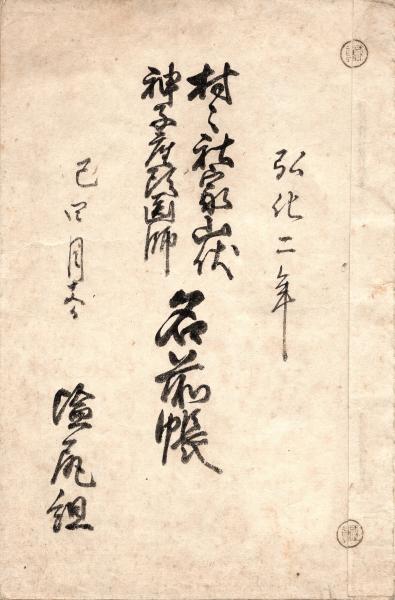 弘化二年
村々社家山伏
神子座頭医師
名前帳
巳四月
塩尻組